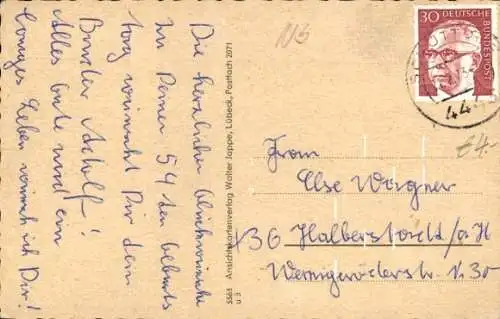 Die herzlichen Glückwünsche
zu Deinem 54 ten Geburts
tag wünscht Dir dein
Bruder Adolf!
Alles Gute und ein
langes Leben wünsch ich Dir!
5563 Ansichtskartenverlag Walter Joppe, Lübeck, Postfach 2071
u 3
NB
30 DEUTSCHE
BUNDESPOST
44
€4-
Frau
Else Wagner
36 Halberstadt/a H
Wernigeröderstr. 30